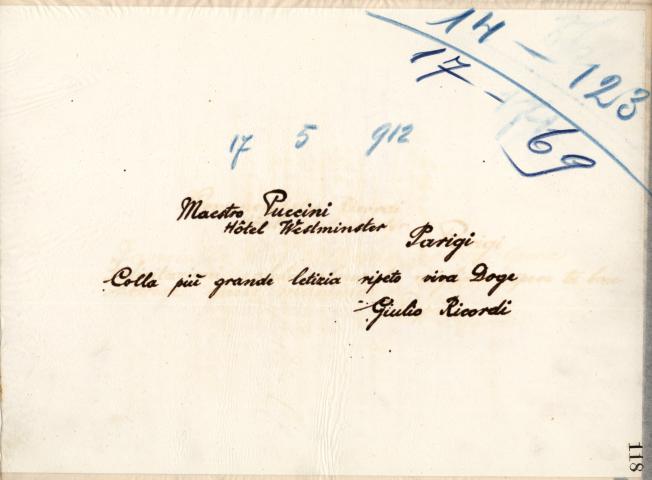 14 - 123
17 - 69
17 5 912
Maestro Puccini
Hôtel Westminster
Parigi
Colla più grande letizia ripeto viva Doge
Giulio Ricordi
118